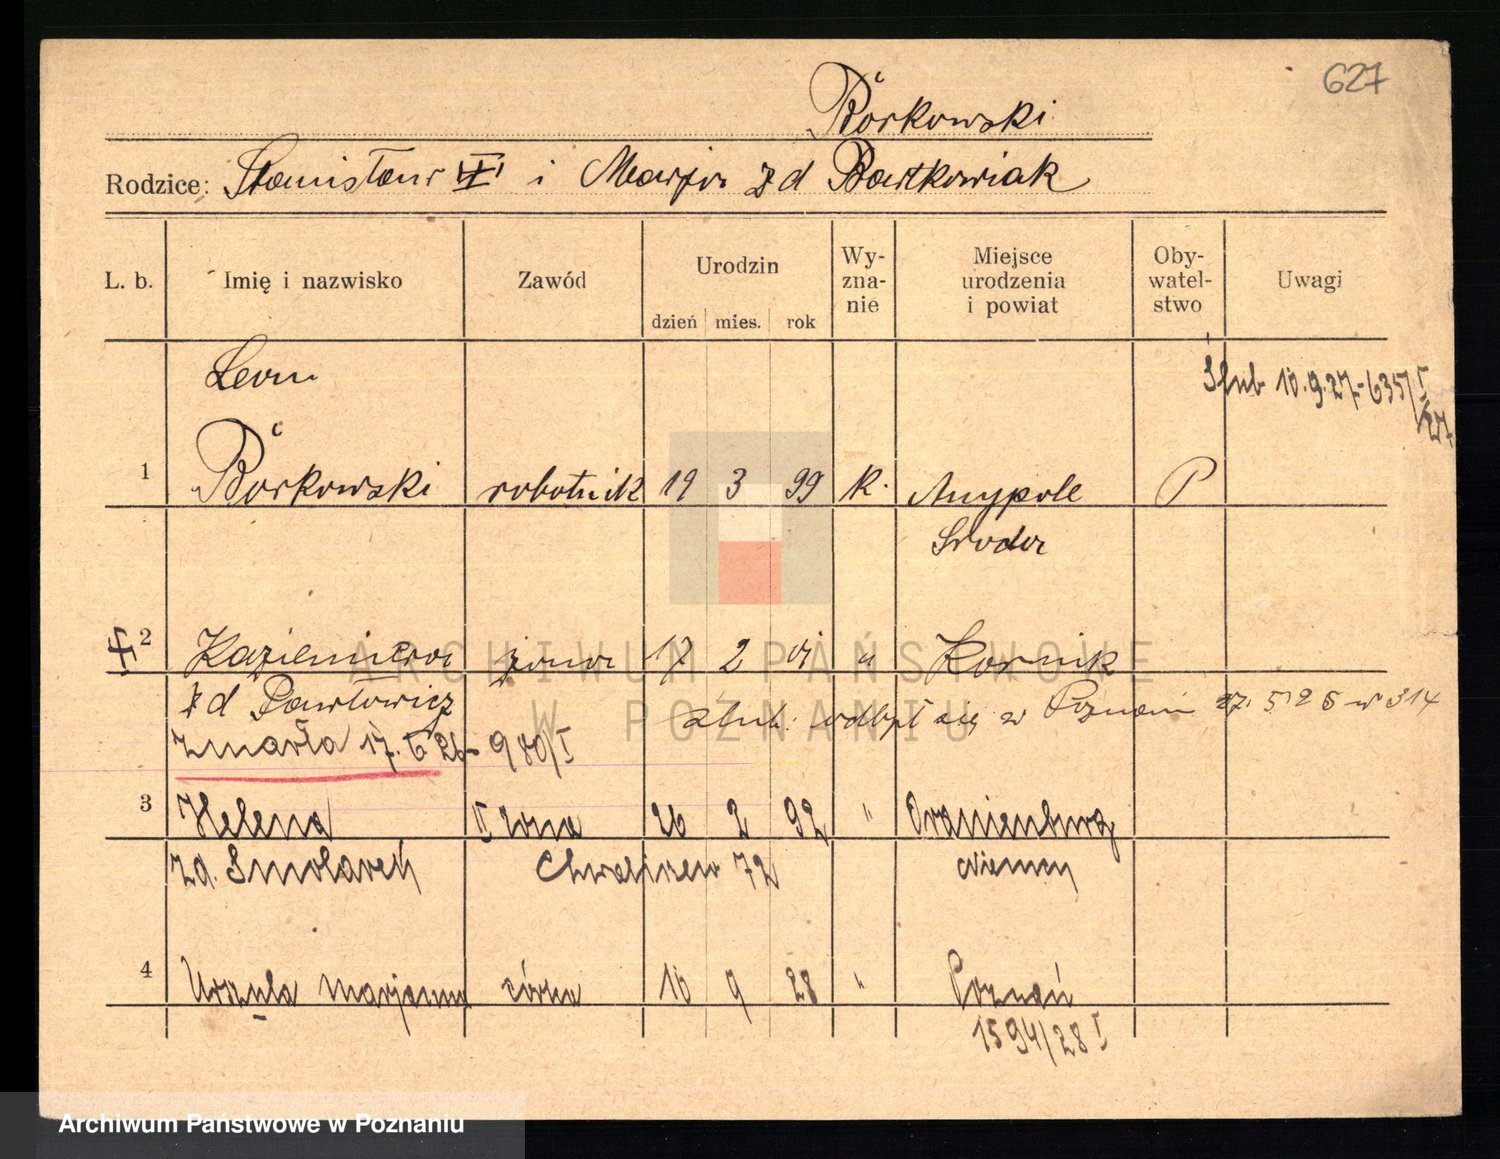 627
Bórkowski
Rodzice: Stanisław i Marja z d Bartkowiak
L. b. Imię i nazwisko Zawód Urodzin dzień mies. rok Wy-zna-nie Miejsce urodzenia i powiat Oby-watel-stwo Uwagi
Leon
Ślub 10.9.27-635/I/27
1 Bórkowski robotnik 19 3 99 k. Anypole P
Środa
2 Kazimiera żona 17 2 " Kórnik
z d Pawłowicz ślub odbył się w Poznaniu 27. 5 26 nr 314
zmarła 17. 6 26- 980/I
3 Helena II żona 26 2 92 " Oranienburg
zd. Smolareń Chwaliszewo 72 Niemcy
4 Urszula Marjanna córka 10 9 28 " Poznań
1594/28 I
ARCHIWUM PAŃSTWOWE
W POZNANIU
Archiwum Państwowe w Poznaniu